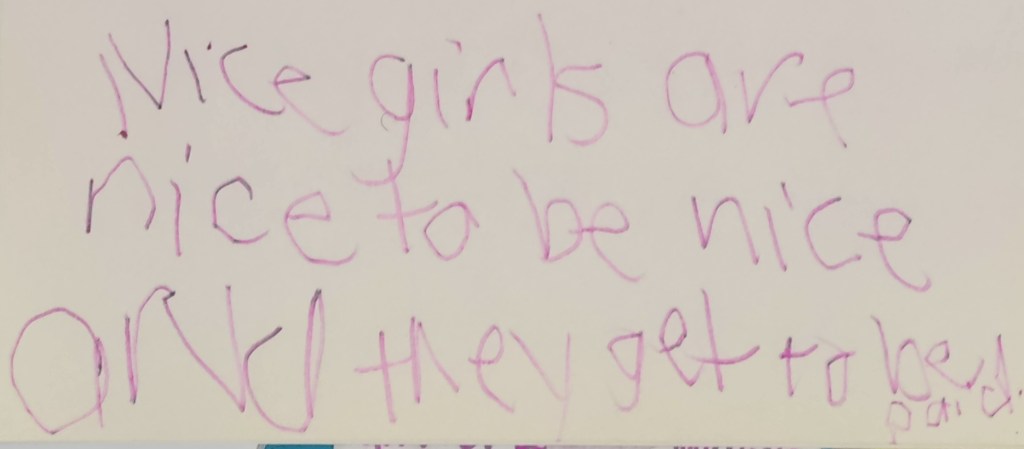 Nice girls are
nice to be nice
and they get to be
paid.